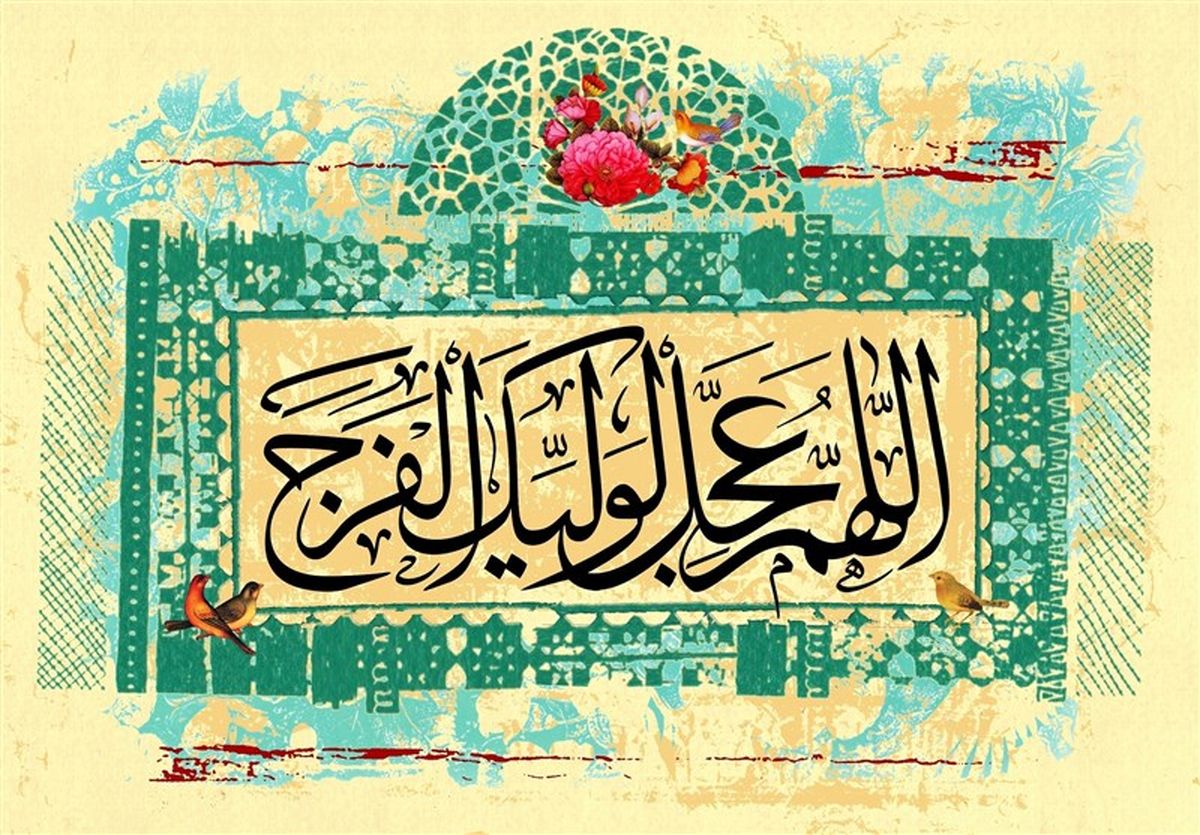 اللَّهُمَّ عَجِّلْ لِوَلِيِّكَ الْفَرَجَ